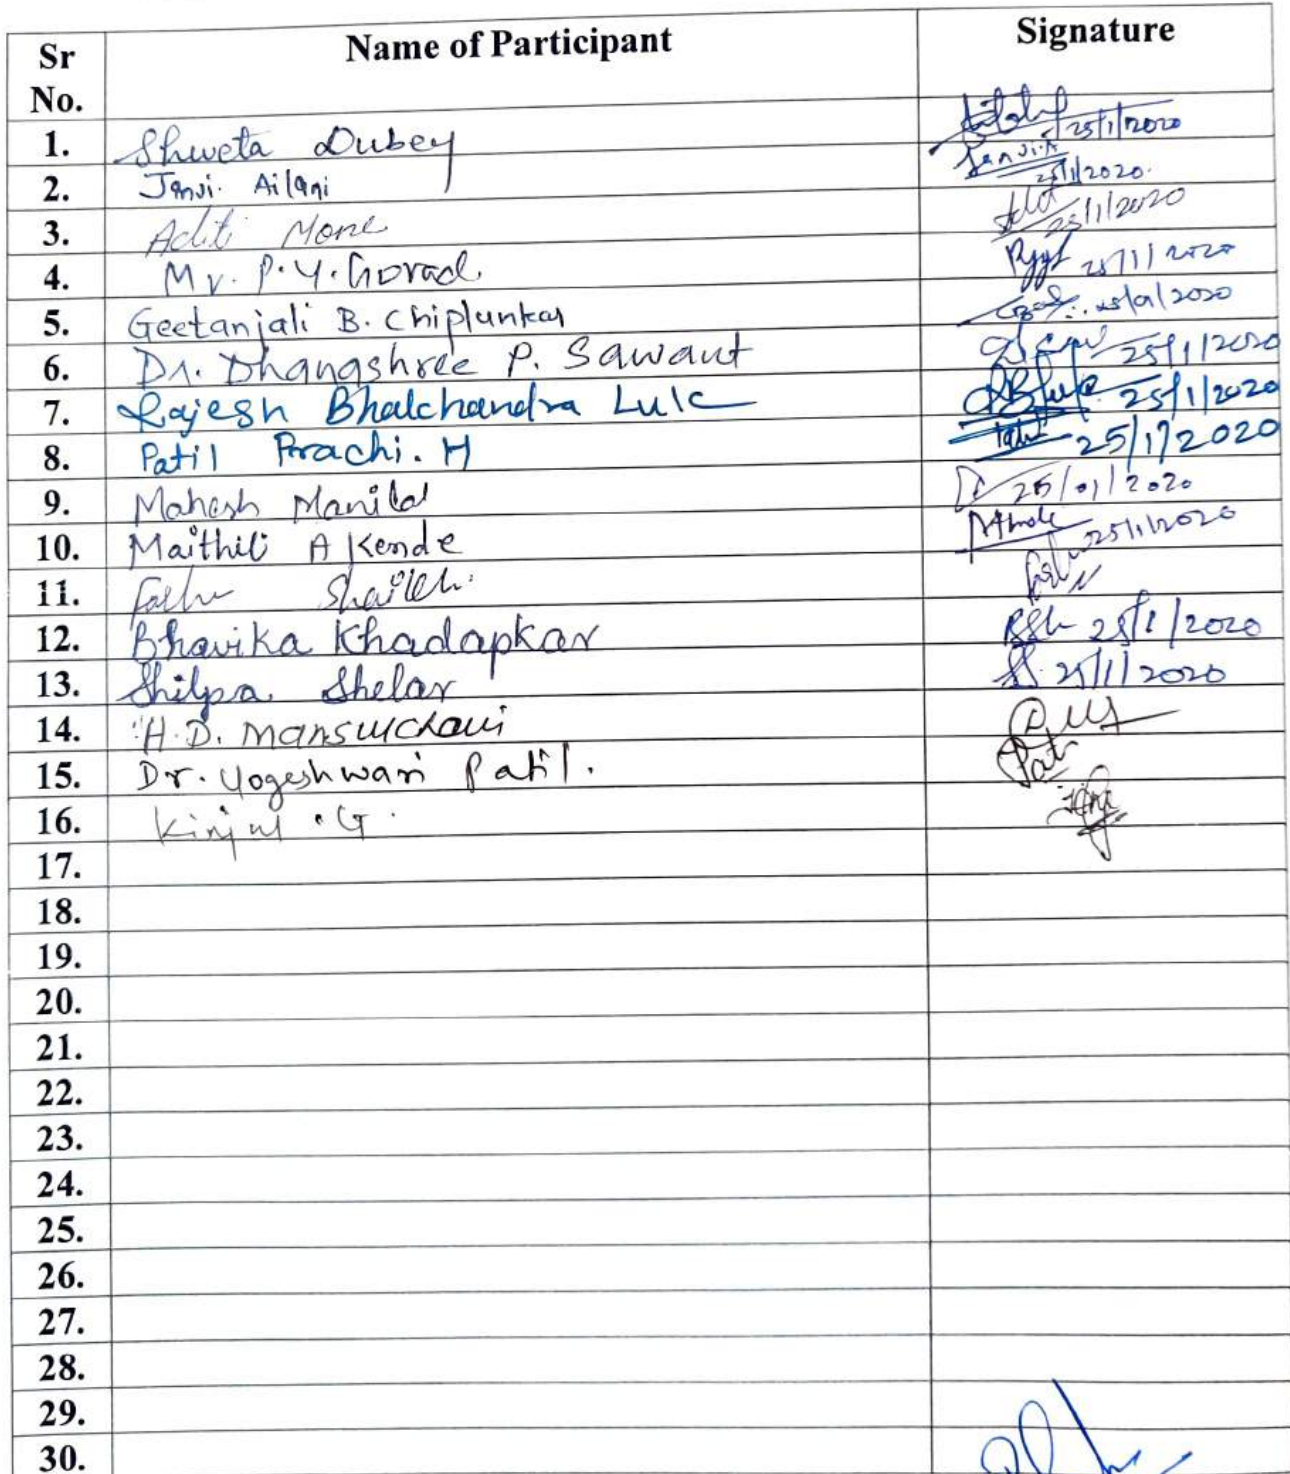 Sr No. Name of Participant Signature
1. Shweta Dubey 25/1/2020
2. Janvi. Ailani Janvi.A 25/1/2020.
3. Aditi More 25/1/2020
4. Mr. P. Y. Gorad 25/1/2020
5. Geetanjali B. Chiplunkar 25/01/2020
6. Dr. Dhanashree P. Sawant 25/1/2020
7. Rajesh Bhalchandra Lule 25/1/2020
8. Patil Prachi. H 25/1/2020
9. Mahesh Manilal 25/01/2020
10. Maithili A Kende 25/1/2020
11. Shaikh.
12. Bhavika Khadapkar 25/1/2020
13. Shilpa Shelar SS. 25/1/2020
14. H.D. Mansukhani
15. Dr. Yogeshwari Patil.
16. Kinjal . G.
17.
18.
19.
20.
21.
22.
23.
24.
25.
26.
27.
28.
29.
30.